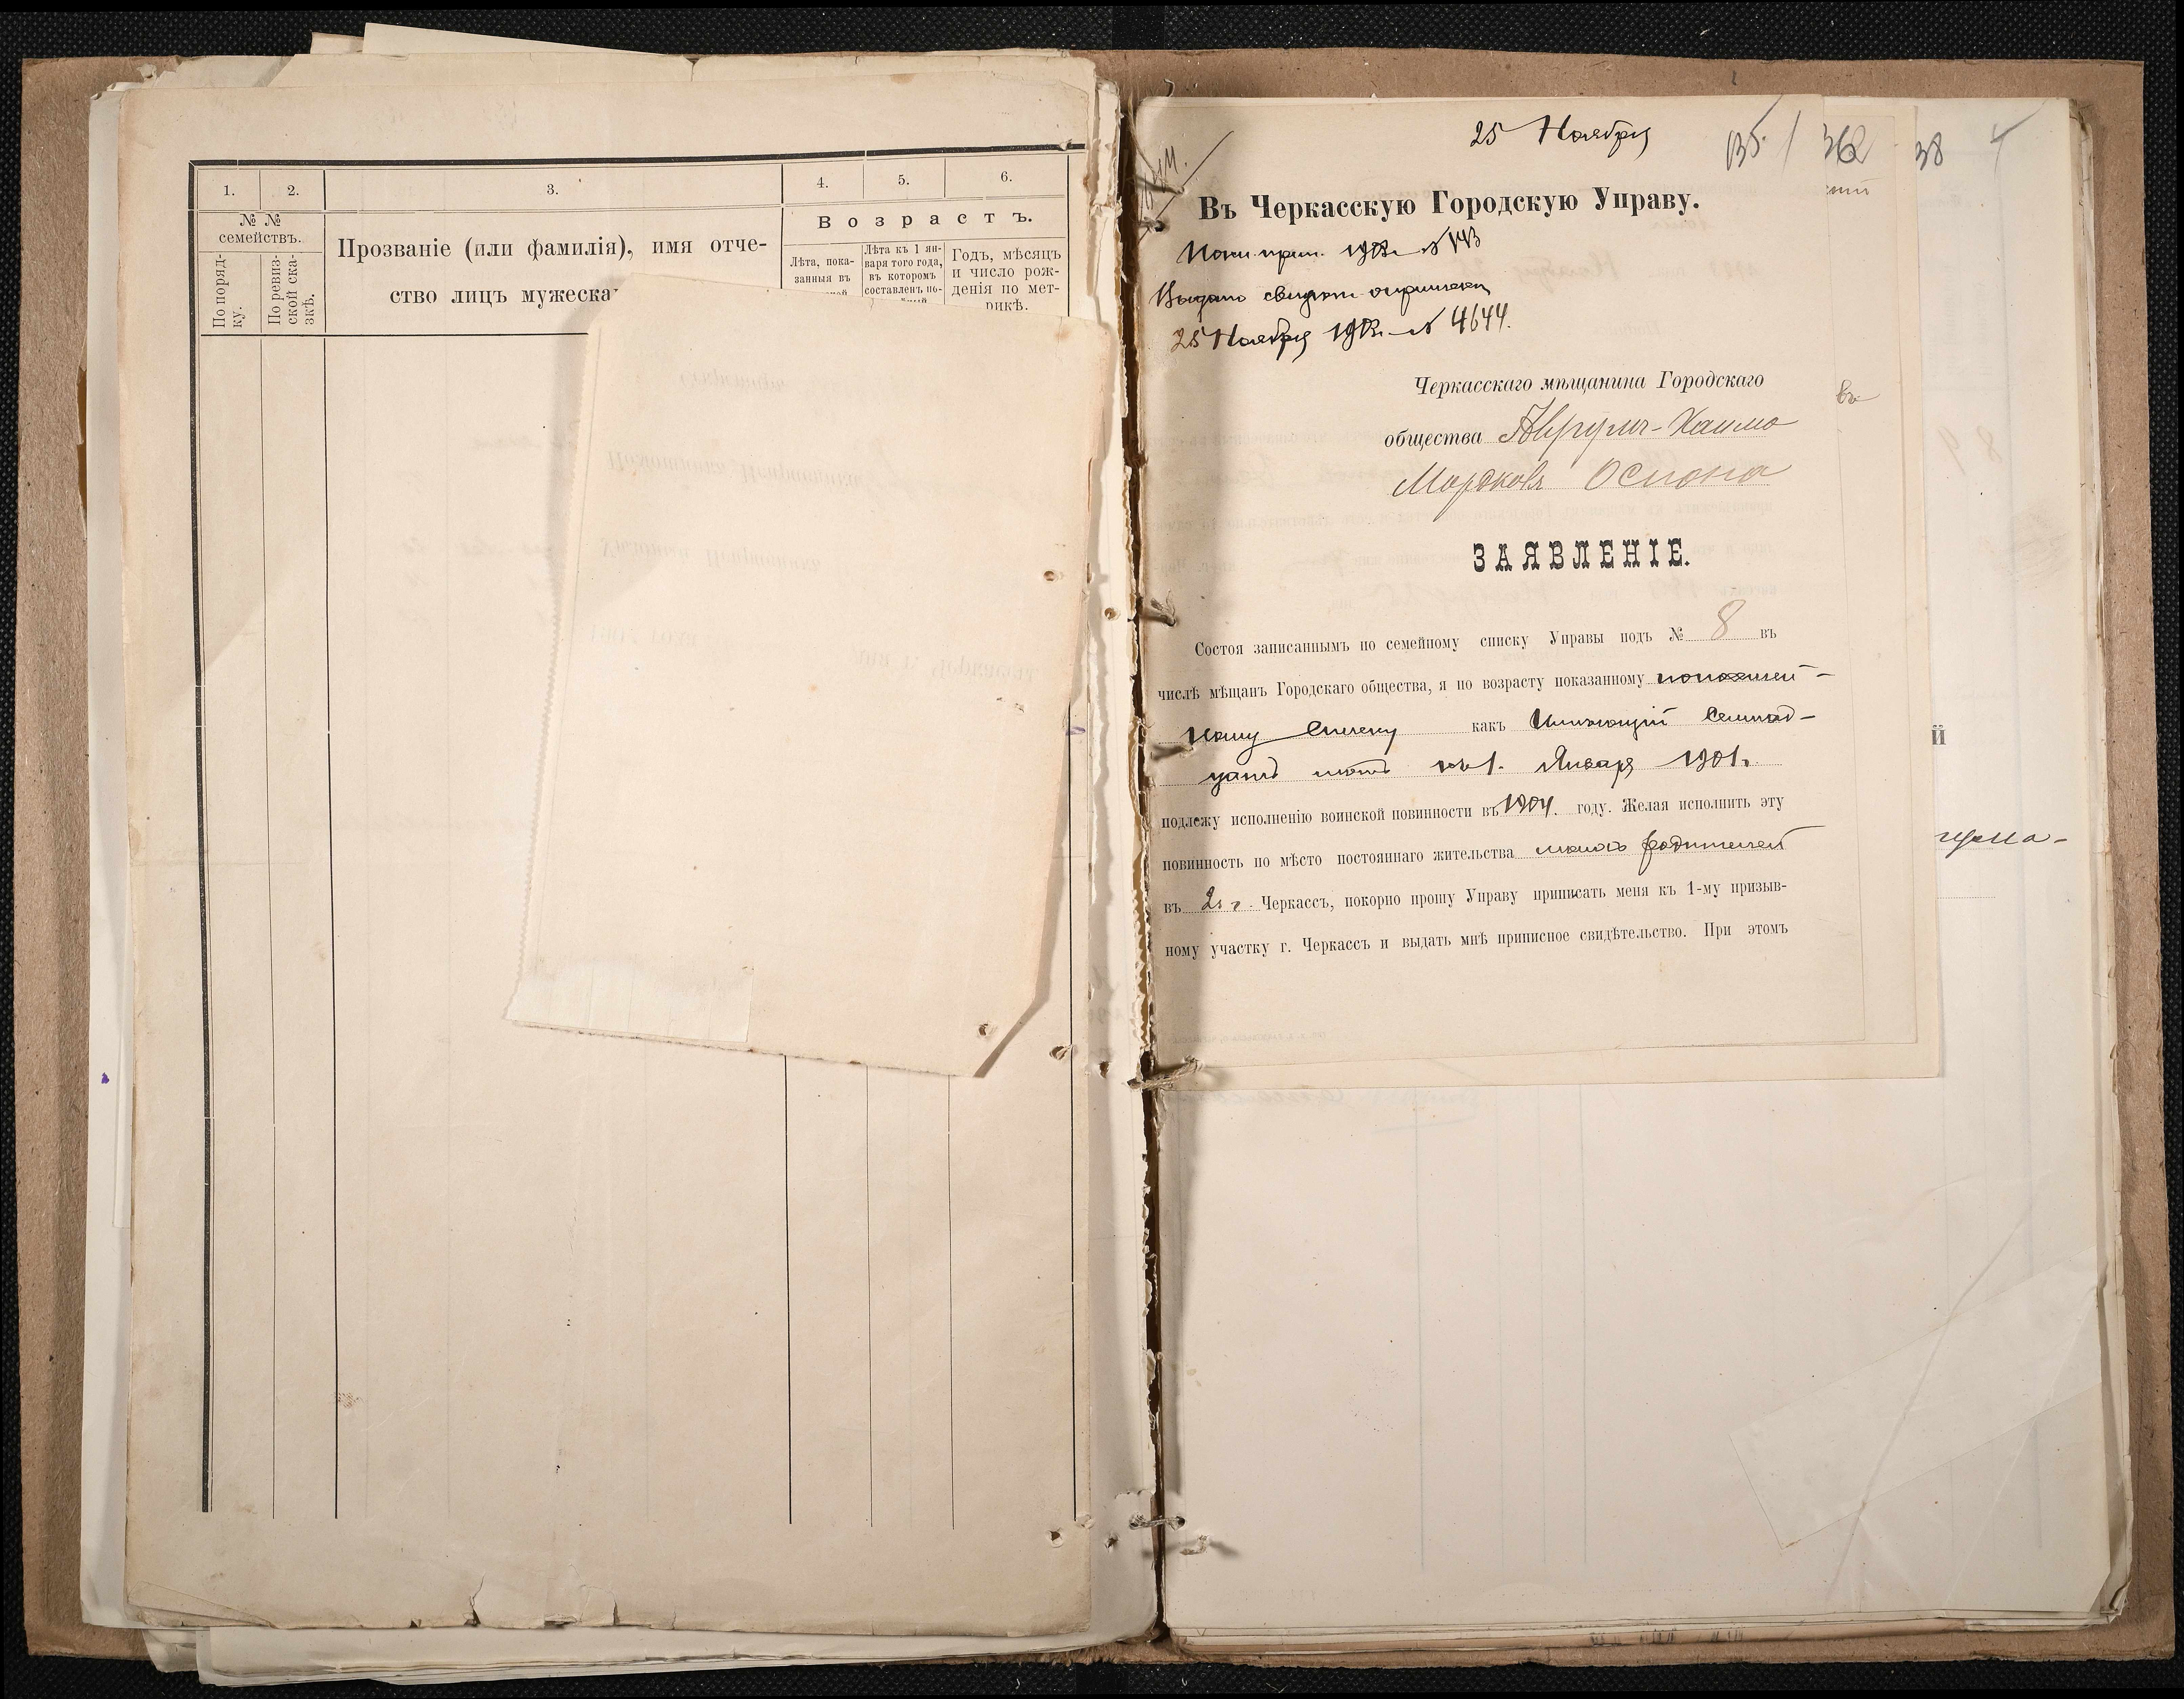 1.
2.
3.
4.
5.
6.
№ №
семействъ.
По поряд-
ку.
По ревиз-
ской ска-
зкѣ.
Прозваніе (или фамилія), имя отче-
ство лицъ мужеска
Возрастъ.
Лѣта, пока-
занныя въ
Лѣта къ 1 ян-
варя того года,
въ которомъ
составленъ по-
Годъ, мѣсяцъ
и число рож-
денія по мет-
рикѣ.
25 Ноября
135
362
38
Въ Черкасскую Городскую Управу.
№ 143
Выдано свидѣт. о припискѣ
25 Ноября 1903 № 4644.
Черкасскаго мѣщанина Городскаго
общества Аврумъ-Хаима
Мордковъ Осиона
ЗАЯВЛЕНІЕ.
Состоя записаннымъ по семейному списку Управы подъ № 8 въ
числѣ мѣщанъ Городскаго общества, я по возрасту показанному по посемей-
ному списку какъ имѣющій семнад-
цать лѣтъ къ 1. Января 1901 г.
подлежу исполненію воинской повинности въ 1904. году. Желая исполнить эту
повинность по мѣсто постояннаго жительства моихъ родителей
въ г. Черкассъ, покорно прошу Управу приписать меня къ 1-му призыв-
ному участку г. Черкассъ и выдать мнѣ приписное свидѣтельство. При этомъ